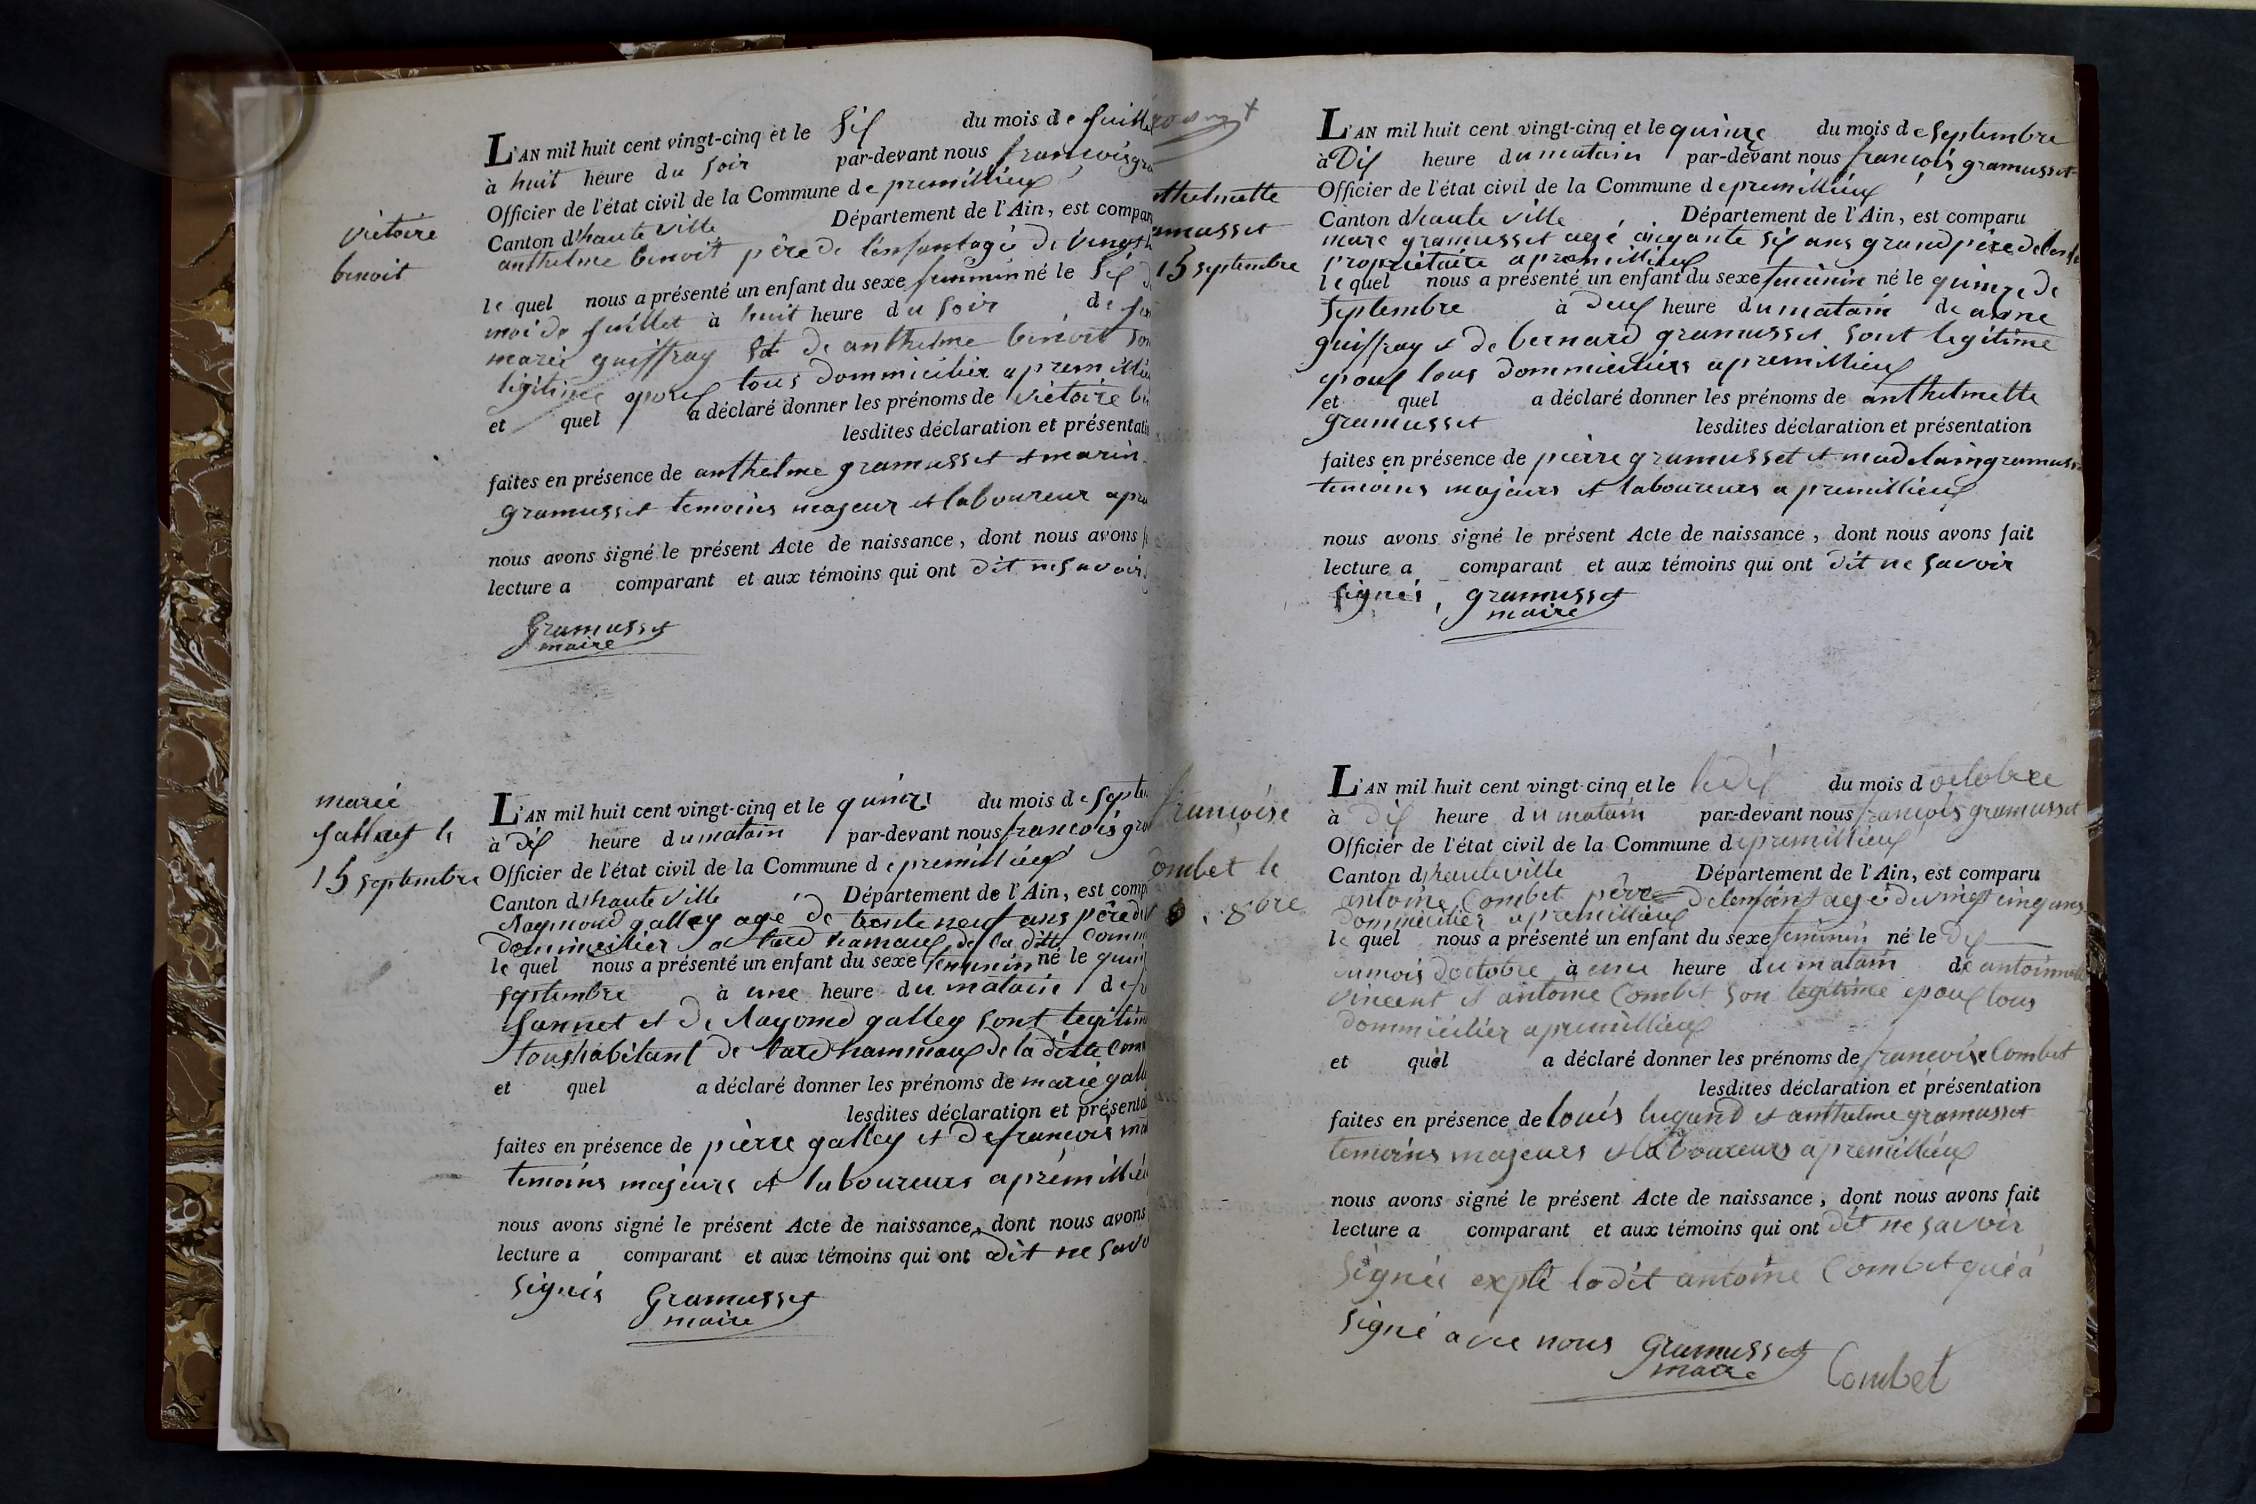 victoire
benoit
L'AN mil huit cent vingt-cinq et le Six du mois de Juille
à huit heure du soir par-devant nous françois gra
Officier de l'état civil de la Commune de premillieux
Canton d'haute ville Département de l'Ain, est compar
anthelme benoit père de l'enfantagé de vingt h
le quel nous a présenté un enfant du sexe feminin né le Six d
moi de Juillet à huit heure du soir de
marie guiffray et de anthelme benoit son
legitime epoux tous dommicilier a premillie
et quel a déclaré donner les prénoms de victoire be
lesdites déclaration et présentati
faites en présence de anthelme gramusset et marin
gramusset temoins majeur et laboureur a pre
nous avons signé le présent Acte de naissance, dont nous avons f
lecture a comparant et aux témoins qui ont dit ne savoir
Gramusset
maire
marie
gallay le
15 septembre
L'AN mil huit cent vingt-cinq et le quinze du mois de septe
à dix heure du matain par-devant nous francois gra
Officier de l'état civil de la Commune de premillieux
Canton d'haute ville Département de l'Ain, est comp
Raymond galley agé de trente neuf ans père de
dommicilier a hamaux de la ditte comm
le quel nous a présenté un enfant du sexe feminin né le quin
septembre à une heure du matain de
et de Rayomd galley sont legitim
tous habitant de hammaux de la ditte com
et quel a déclaré donner les prénoms de marie gall
lesdites déclaration et présenta
faites en présence de pierre galley et de francois
temoins majeurs et laboureurs a premillie
nous avons signé le présent Acte de naissance, dont nous avons
lecture a comparant et aux témoins qui ont dit ne savo
signés Gramusset
maire
thelmette
amusset
15 septembre
L'AN mil huit cent vingt-cinq et le quinze du mois de septembre
à Dix heure du matain par-devant nous françois gramusset
Officier de l'état civil de la Commune de premillieux
Canton d'haute ville Département de l'Ain, est comparu
marc gramusset agé cinqante six ans grand père de lenfa
propriétaire a premillieux
le quel nous a présenté un enfant du sexe feminin né le quinze de
septembre à deux heure du matain de anne
guiffray et de bernard gramusset sont legitime
epoux tous dommiciliers a premillieux
et quel a déclaré donner les prénoms de anthelmette
gramusset lesdites déclaration et présentation
faites en présence de pierre gramusset et madelain gramuss
temoins majeurs et laboureurs a premillieux
nous avons signé le présent Acte de naissance, dont nous avons fait
lecture a comparant et aux témoins qui ont dit ne savoir
signés, gramusset
maire
françoise
ombet le
8bre
L'AN mil huit cent vingt-cinq et le dix du mois d octobre
à dix heure du matain par-devant nous françois gramusset
Officier de l'état civil de la Commune de premillieux
Canton d'haute ville Département de l'Ain, est comparu
antoine Combet père de lenfant agé de vingt cinq ans
dommicilier a premillieux
le quel nous a présenté un enfant du sexe feminin né le dix
du mois doctobre à une heure du matain de antoinnette
vincent et antoine Combet son legitime epoux tous
dommicilier a premillieux
et quel a déclaré donner les prénoms de francoise Combet
lesdites déclaration et présentation
faites en présence de Louis lugand et anthelme gramusset
temoins majeurs et laboureurs a premillieux
nous avons signé le présent Acte de naissance, dont nous avons fait
lecture a comparant et aux témoins qui ont dit ne savoir
signés expté ledit antoine Combet qui a
signé avec nous Gramusset
maire Combet